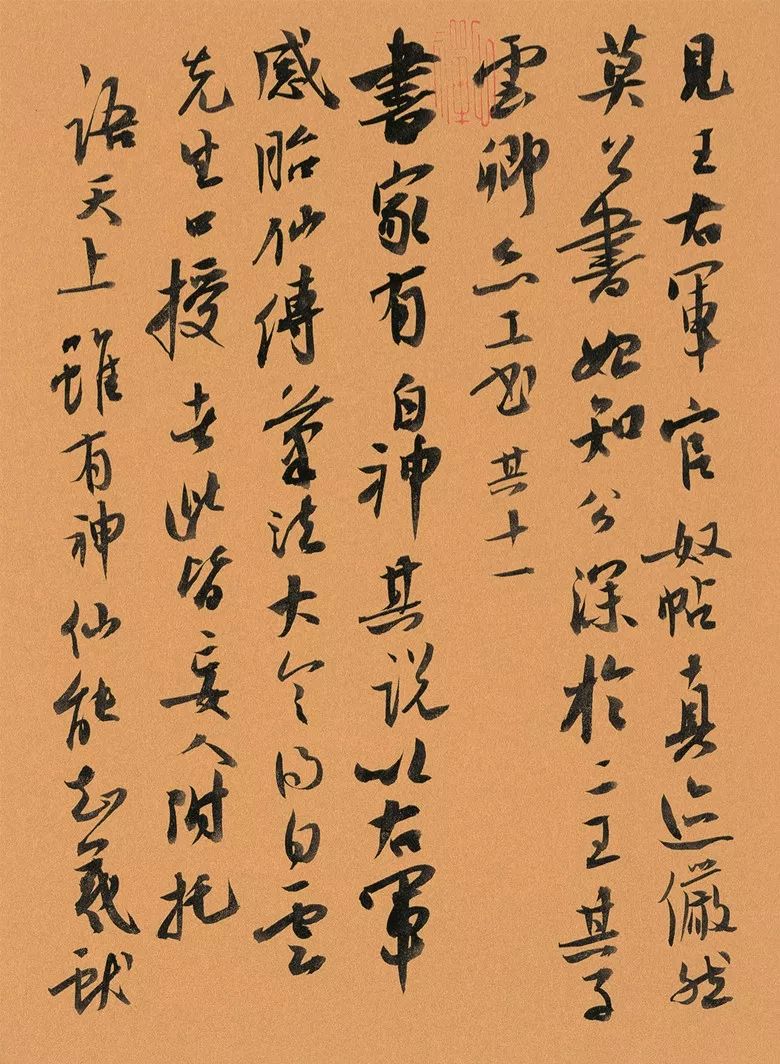 見王右軍官奴帖真迹儼然
莫公書始知公深於二王其子
雲卿亦工書 其十一
書家有自神其説以右軍
感胎仙傳筆法大令得白雲
先生口授者此皆妄人附托
語天上雖有神仙能知羲獻